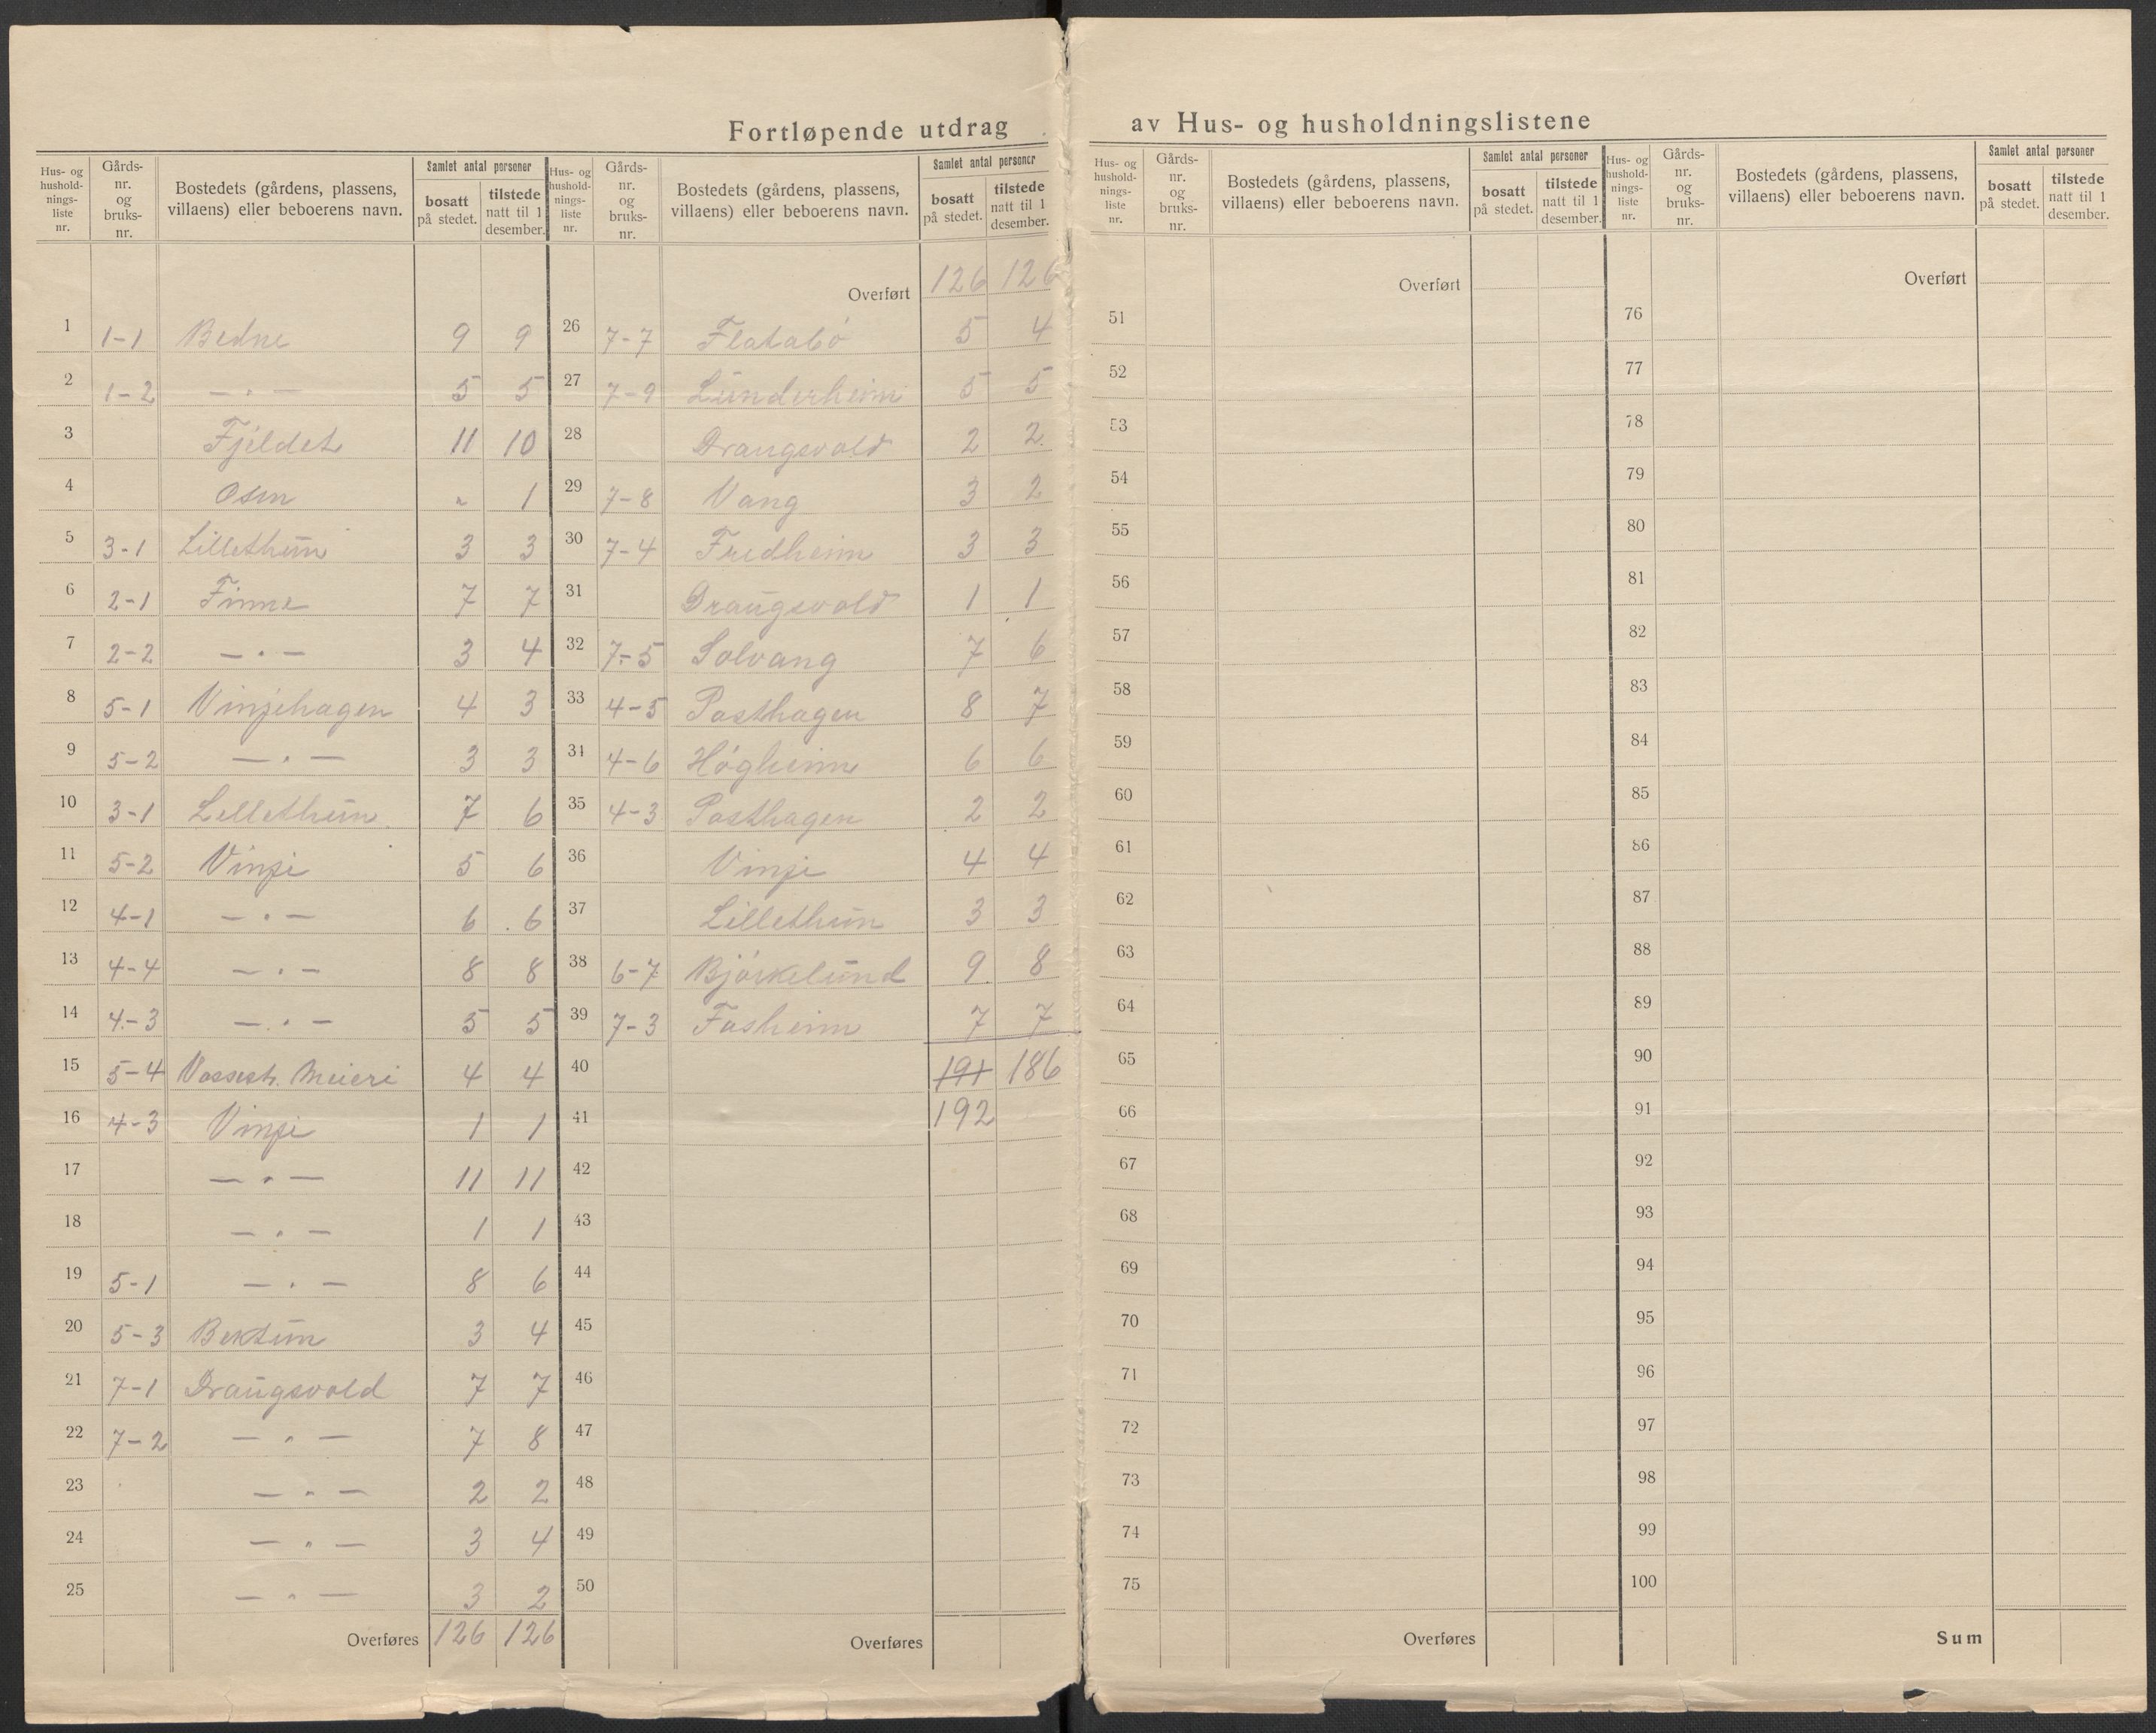 Fortløpende utdrag av Hus- og husholdningslistene
Hus- og hushold- nings- liste nr. | Gårds- nr. og bruks- nr. | Bostedets (gårdens, plassens, villaens) eller beboerens navn. | Samlet antal personer | bosatt på stedet. | tilstede natt til 1 desember.
1 1-1 Bedne 9 9
2 1-2 — " — 5 5
3 Fjeldet 11 10
4 Osen " 1
5 3-1 Lillethun 3 3
6 2-1 Finne 7 7
7 2-2 — " — 3 4
8 5-1 Vinjehagen 4 3
9 5-2 — " — 3 3
10 3-1 Lillethun 7 6
11 5-2 Vinje 5 6
12 4-1 — " — 6 6
13 4-4 — " — 8 8
14 4-3 — " — 5 5
15 5-4 Vossestr. Meieri 4 4
16 4-3 Vinje 1 1
17 — " — 11 11
18 — " — 1 1
19 5-1 — " — 8 6
20 5-3 Bertun 3 4
21 7-1 Draugsvold 7 7
22 7-2 — " — 7 8
23 — " — 2 2
24 — " — 3 4
25 — " — 3 2
Overføres 126 126
Hus- og hushold- nings- liste nr. | Gårds- nr. og bruks- nr. | Bostedets (gårdens, plassens, villaens) eller beboerens navn. | Samlet antal personer | bosatt på stedet. | tilstede natt til 1 desember.
Overført 126 126
26 7-7 Flatabø 5 4
27 7-9 Lunderheim 5 5
28 Draugsvold 2 2
29 7-8 Vang 3 2
30 7-4 Fredheim 3 3
31 Draugsvold 1 1
32 7-5 Solvang 7 6
33 4-5 Posthagen 8 7
34 4-6 Høgheim 6 6
35 4-3 Posthagen 2 2
36 Vinje 4 4
37 Lillethun 3 3
38 6-7 Bjørkelund 9 8
39 7-3 Fasheim 7 7
40 191 186
41 192
42
43
44
45
46
47
48
49
50
Overføres
Hus- og hushold- nings- liste nr. | Gårds- nr. og bruks- nr. | Bostedets (gårdens, plassens, villaens) eller beboerens navn. | Samlet antal personer | bosatt på stedet. | tilstede natt til 1 desember.
Overført
51
52
53
54
55
56
57
58
59
60
61
62
63
64
65
66
67
68
69
70
71
72
73
74
75
Overføres
Hus- og hushold- nings- liste nr. | Gårds- nr. og bruks- nr. | Bostedets (gårdens, plassens, villaens) eller beboerens navn. | Samlet antal personer | bosatt på stedet. | tilstede natt til 1 desember.
Overført
76
77
78
79
80
81
82
83
84
85
86
87
88
89
90
91
92
93
94
95
96
97
98
99
100
Sum